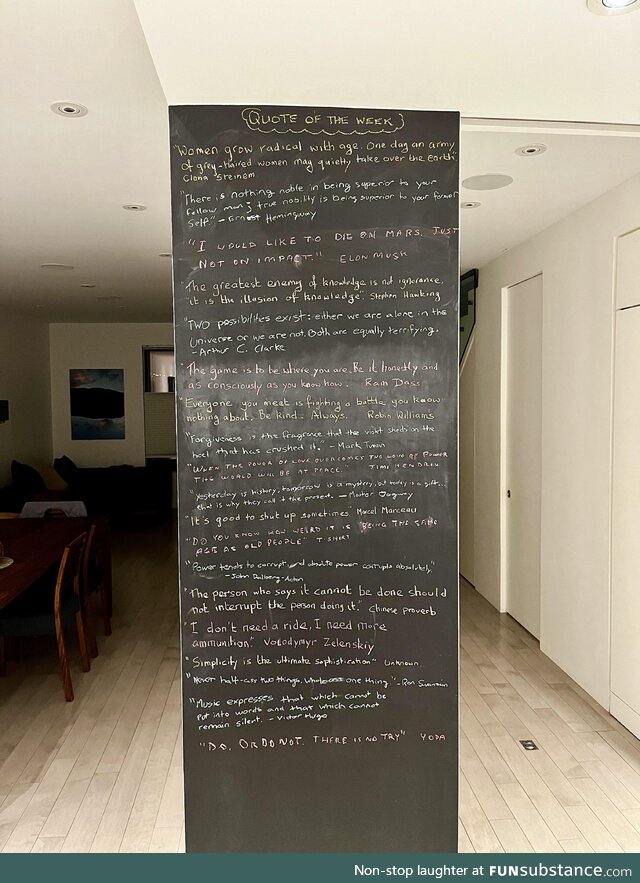 QUOTE OF THE WEEK
"Women grow radical with age. One day an army
of grey-haired women may quietly take over the earth"
Gloria Steinem
"There is nothing noble in being superior to your
fellow man; true nobility is being superior to your former
self." - Ernest Hemingway
"I WOULD LIKE TO DIE ON MARS. JUST
NOT ON IMPACT." ELON MUSK
"The greatest enemy of knowledge is not ignorance,
it is the illusion of knowledge". Stephen Hawking
"TWO possibilities exist: either we are alone in the
Universe or we are not. Both are equally terrifying.
- Arthur C. Clarke
"The game is to be where you are. Be it honestly and
as consciously as you know how. Ram Dass
"Everyone you meet is fighting a battle you know
nothing about. Be kind. Always. Robin Williams
"Forgiveness is the fragrance that the violet sheds on the
heel that has crushed it." - Mark Twain
"WHEN THE POWER OF LOVE OVERCOMES THE LOVE OF POWER
THE WORLD WILL BE AT PEACE." JIMI HENDRIX
"Yesterday is history, tomorrow is a mystery, but today is a gift...
that is why they call it the present. - Master Oogway
"It's good to shut up sometimes" Marcel Marceau
"DO YOU KNOW HOW WEIRD IT IS BEING THE SAME
AGE AS OLD PEOPLE" T-SHIRT
"Power tends to corrupt, and absolute power corrupts absolutely."
- John Dalberg-Acton
"The person who says it cannot be done should
not interrupt the person doing it." Chinese proverb
"I don't need a ride, I need more
ammunition." Volodymyr Zelenskiy
"Simplicity is the ultimate sophistication" Unknown.
"Never half-ass two things. Whole ass one thing." - Ron Swanson
"Music expresses that which cannot be
put into words and that which cannot
remain silent. - Victor Hugo
"DO, OR DO NOT. THERE IS NO TRY" YODA
Non-stop laughter at FUNsubstance.com